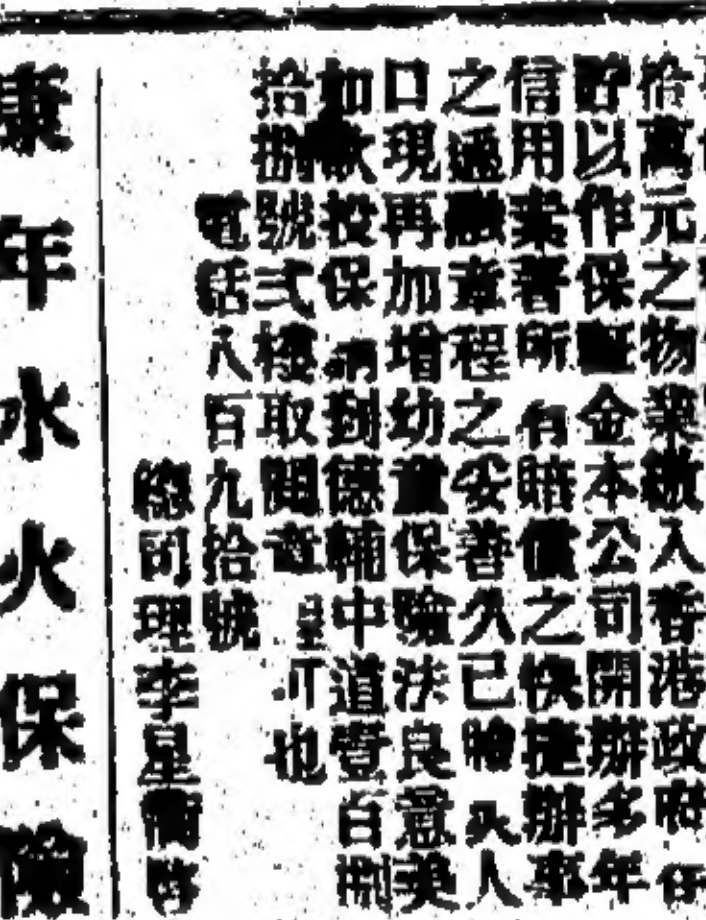 拾萬元之物業繳入香港政府存
貯以作保証金本公司開辦多年
信用業著所有賠償之快捷辦事
之通融章程之妥善久已膾炙人
口現再加增幼童保險法良意美
如欲投保請到德輔中道壹百捌
拾捌號弍樓取閱章程可也
電話八百九拾號
總司理李星衢啓
康年水火保險